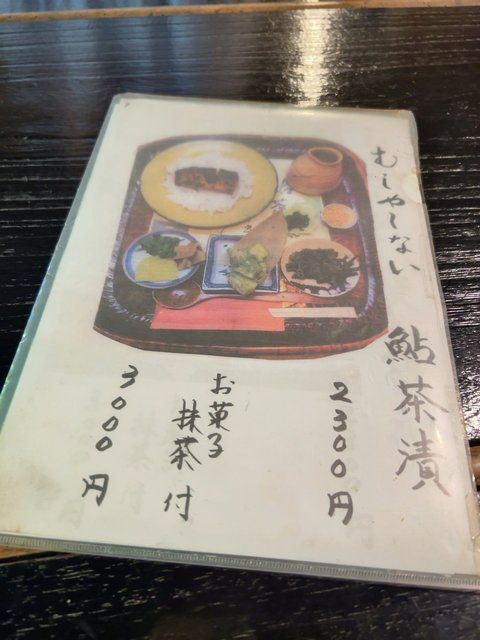 むしやしない 鮎茶漬
2300円
お菓子
抹茶付
3000円